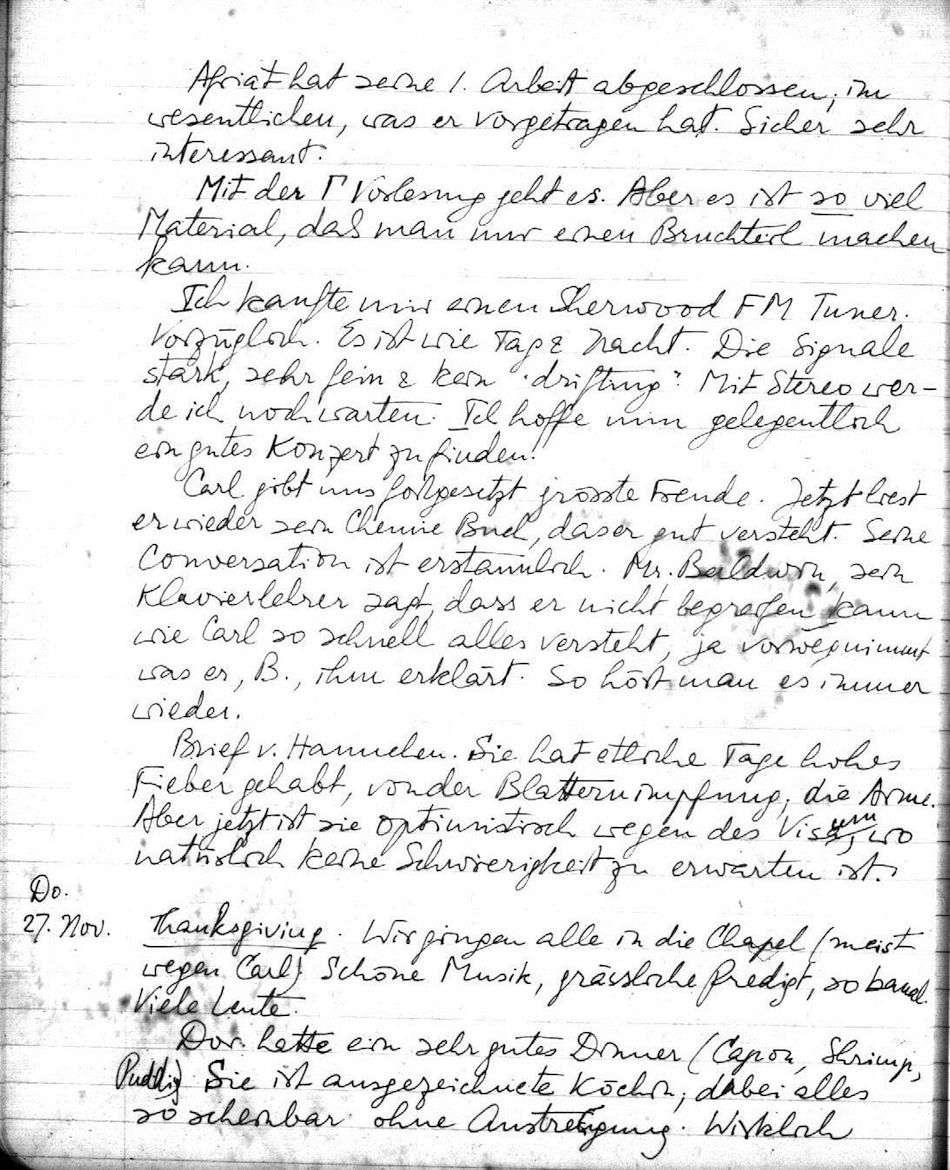 Afriat hat seine 1. Arbeit abgeschlossen, im
wesentlichen, was er vorgetragen hat. Sicher sehr
interessant.
Mit der Γ Vorlesung geht es. Aber es ist so viel
Material, daß man nur einen Bruchteil machen
kann.
Ich kaufte mir einen Sherwood FM Tuner.
Vorzüglich. Es ist wie Tag & Nacht. Die Signale
stark, sehr fein & kein "drifting". Mit Stereo wer-
de ich noch warten. Ich hoffe nun gelegentlich
ein gutes Konzert zu finden.
Carl gibt uns fortgesetzt grösste Freude. Jetzt liest
er wieder sein Chemie Buch, das er gut versteht. Seine
Conversation ist erstaunlich. Mr. Baldwin, sein
Klavierlehrer sagt, dass er nicht begreifen kann
wie Carl so schnell alles versteht, ja vorwegnimmt
was er, B., ihm erklärt. So hört man es immer
wieder.
Brief v. Hannchen. Sie hat etliche Tage hohes
Fieber gehabt, von der Blatternimpfung, die Arme.
Aber jetzt ist sie optimistisch wegen des Visums, wo
natürlich keine Schwierigkeit zu erwarten ist.
Do.
27. Nov. Thanksgiving. Wir gingen alle in die Chapel (meist
wegen Carl) Schöne Musik, grässliche Predigt, so banal.
Viele Leute.
Dor. hatte ein sehr gutes Dinner (Capon, Shrimp,
Puddig) Sie ist ausgezeichnete Köchin, dabei alles
so scheinbar ohne Anstrengung. Wirklich